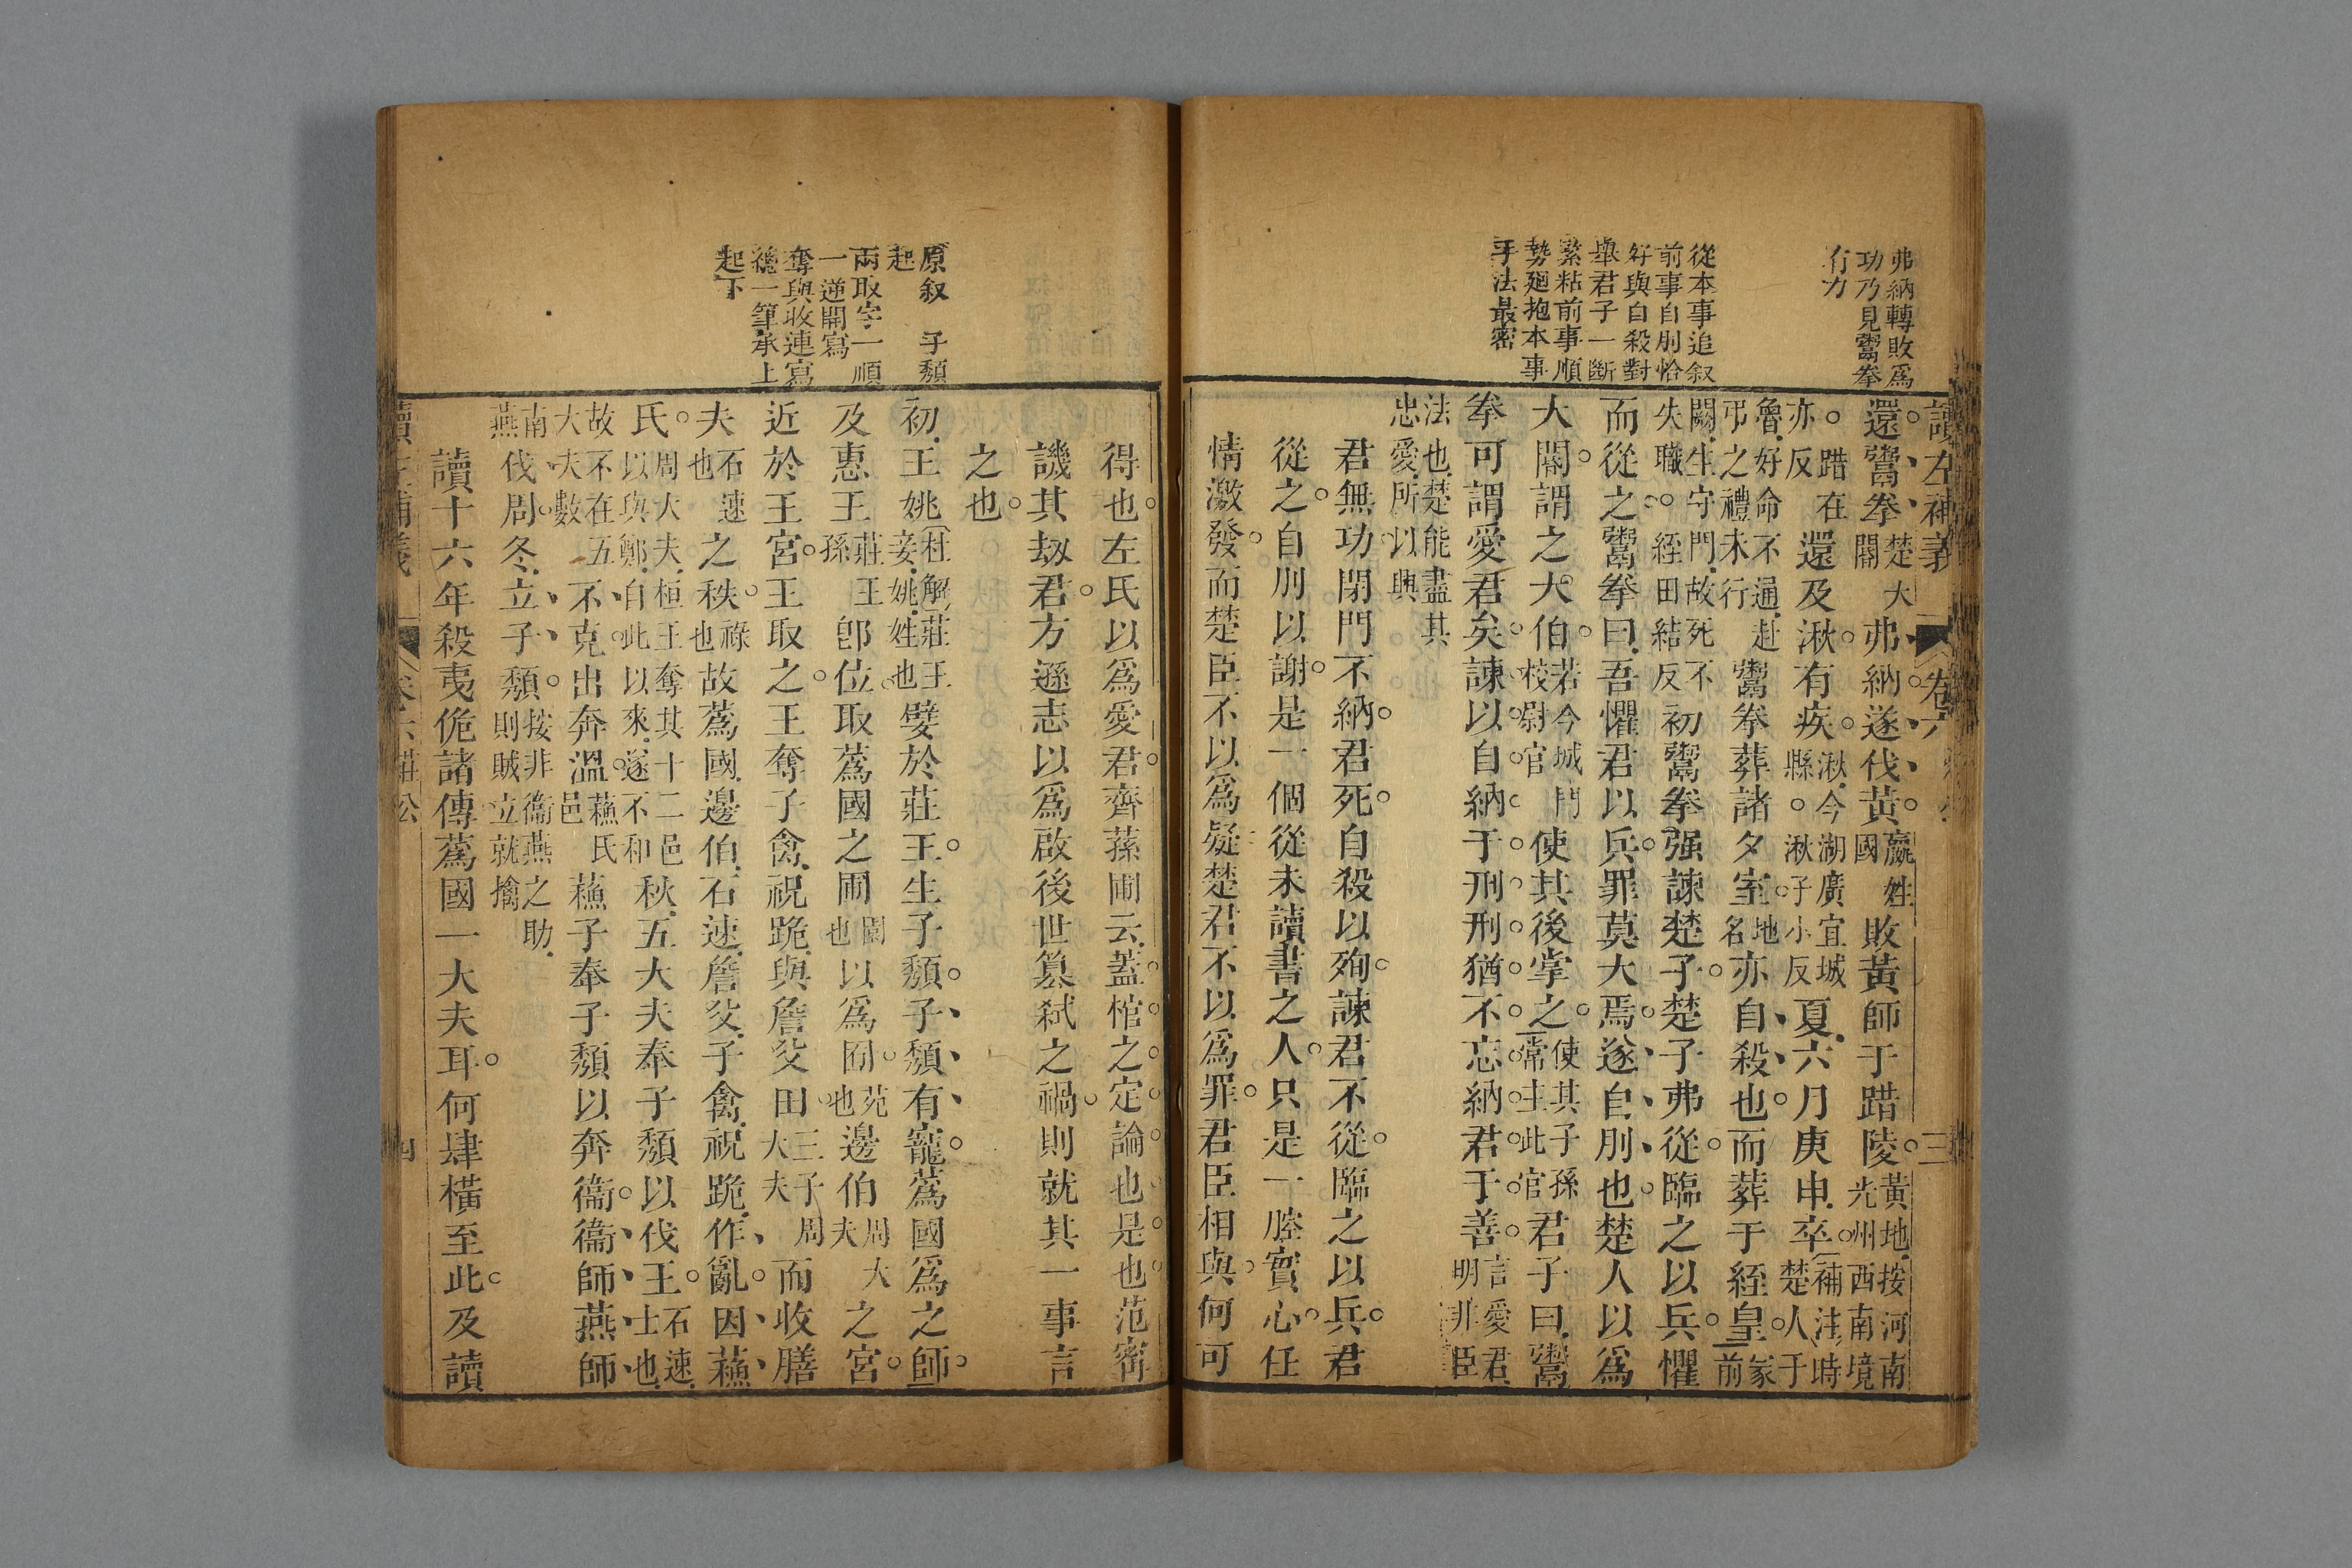 弗納轉敗爲
功乃見鬻拳
有力
從本事追叙
前事自刖恰
好與自殺對
舉君子一斷
緊粘前事順
勢廻抱本事
手法最密
讀左補義 卷六 三
還鬻拳楚大閽弗納遂伐黃嬴姓國敗黃師于踖陵黃地按河南光州西南境
踖在亦反還及湫有疾湫今湖廣宜城縣湫子小反夏六月庚申卒補注時楚人于
魯好命不通赴弔之禮未行鬻拳葬諸夕室地名亦自殺也而葬于絰皇冢前
闕生守門故死不失職絰田結反初鬻拳强諫楚子楚子弗從臨之以兵懼
而從之鬻拳曰吾懼君以兵罪莫大焉遂自刖也楚人以爲
大閽謂之大伯若今城門校尉官使其後掌之使其子孫常主此官君子曰鬻
拳可謂愛君矣諫以自納于刑刑猶不忘納君于善言愛君明非臣
法也楚能盡其忠愛所以興
君無功閉門不納君死自殺以殉諫君不從臨之以兵君
從之自刖以謝是一個從未讀書之人只是一腔實心任
情激發而楚臣不以爲疑楚君不以爲罪君臣相與何可
原叙子頹
起
兩取字一順
一逆開寫
奪與收連寫
總一筆承上
起下
得也左氏以爲愛君齊蓀圃云蓋棺之定論也是也范甯
譏其刼君方遜志以爲啟後世簒弑之禍則就其一事言
之也
初王姚杜解莊王妾姚姓也嬖於莊王生子頹子頹有寵蔿國爲之師
及惠王莊王孫卽位取蔿國之圃園也以爲囿苑也邊伯周大夫之宮
近於王宮王取之王奪子禽祝跪與詹父田三子周大夫而收膳
夫石速也之秩祿也故蔿國邊伯石速詹父子禽祝跪作亂因蘇
氏周大夫桓王奪其十二邑以與鄭自此以來遂不和秋五大夫奉子頹以伐王石速士也
故不在五大夫數不克出奔溫蘇氏邑蘇子奉子頹以奔衞衞師燕師
南燕伐周冬立子頹按非衞燕之助則賊立就擒
讀十六年殺夷佹諸傳蔿國一大夫耳何肆橫至此及讀
卷六 莊公 四